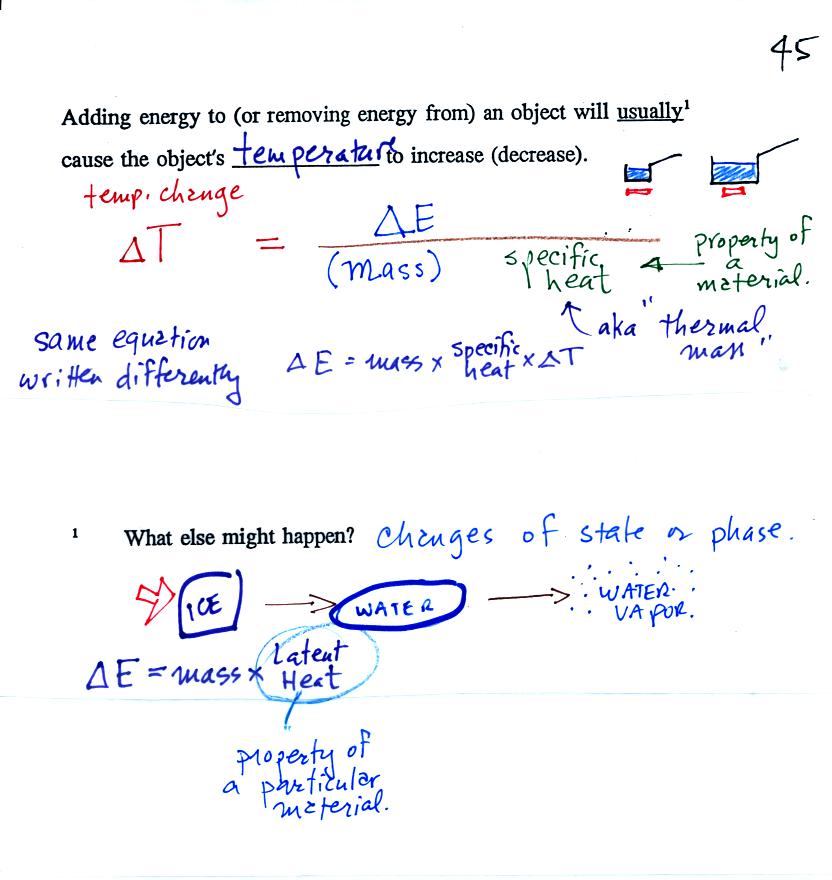 45
Adding energy to (or removing energy from) an object will usually¹
cause the object's temperature to increase (decrease).
temp. change
ΔT = ΔE
(mass) specific heat
property of
a
material.
aka "thermal
mass"
same equation
written differently
ΔE = mass x specific heat x ΔT
¹ What else might happen? Changes of state or phase.
ICE
WATER
WATER
VAPOR.
ΔE = mass x Latent Heat
property of
a particular
material.